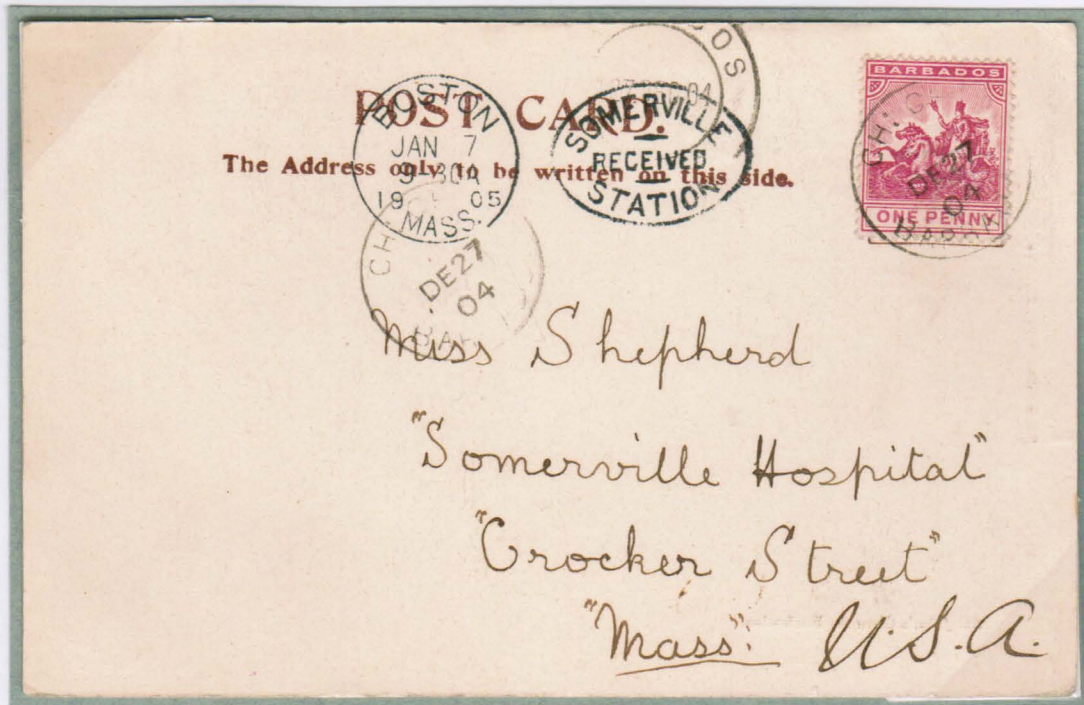 POST CARD.
The Address only to be written on this side.
BOSTON
JAN 7
9-30A
1905
MASS.
SOMERVILLE
RECEIVED
STATION
DOS
04
BARBADOS
ONE PENNY
CH.
DE27
04
CH.
DE27
04
BAR
Miss Shepherd
"Somerville Hospital"
"Crocker Street"
"Mass". U.S.A.